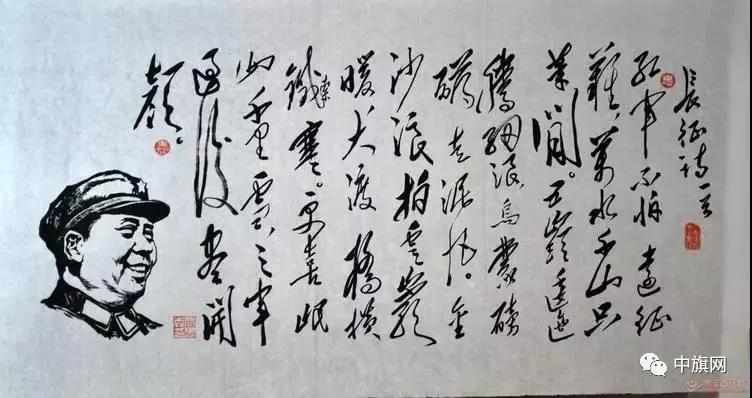 長征詩一首
紅軍不怕遠征
難,萬水千山只
等閒。五嶺逶迤
騰細浪,烏蒙磅
礴走泥丸。金
沙浪拍雲巖
暖,大渡橋橫
鐵索寒。更喜岷
山千里雪,三軍
過後盡開
顏。
中旗网